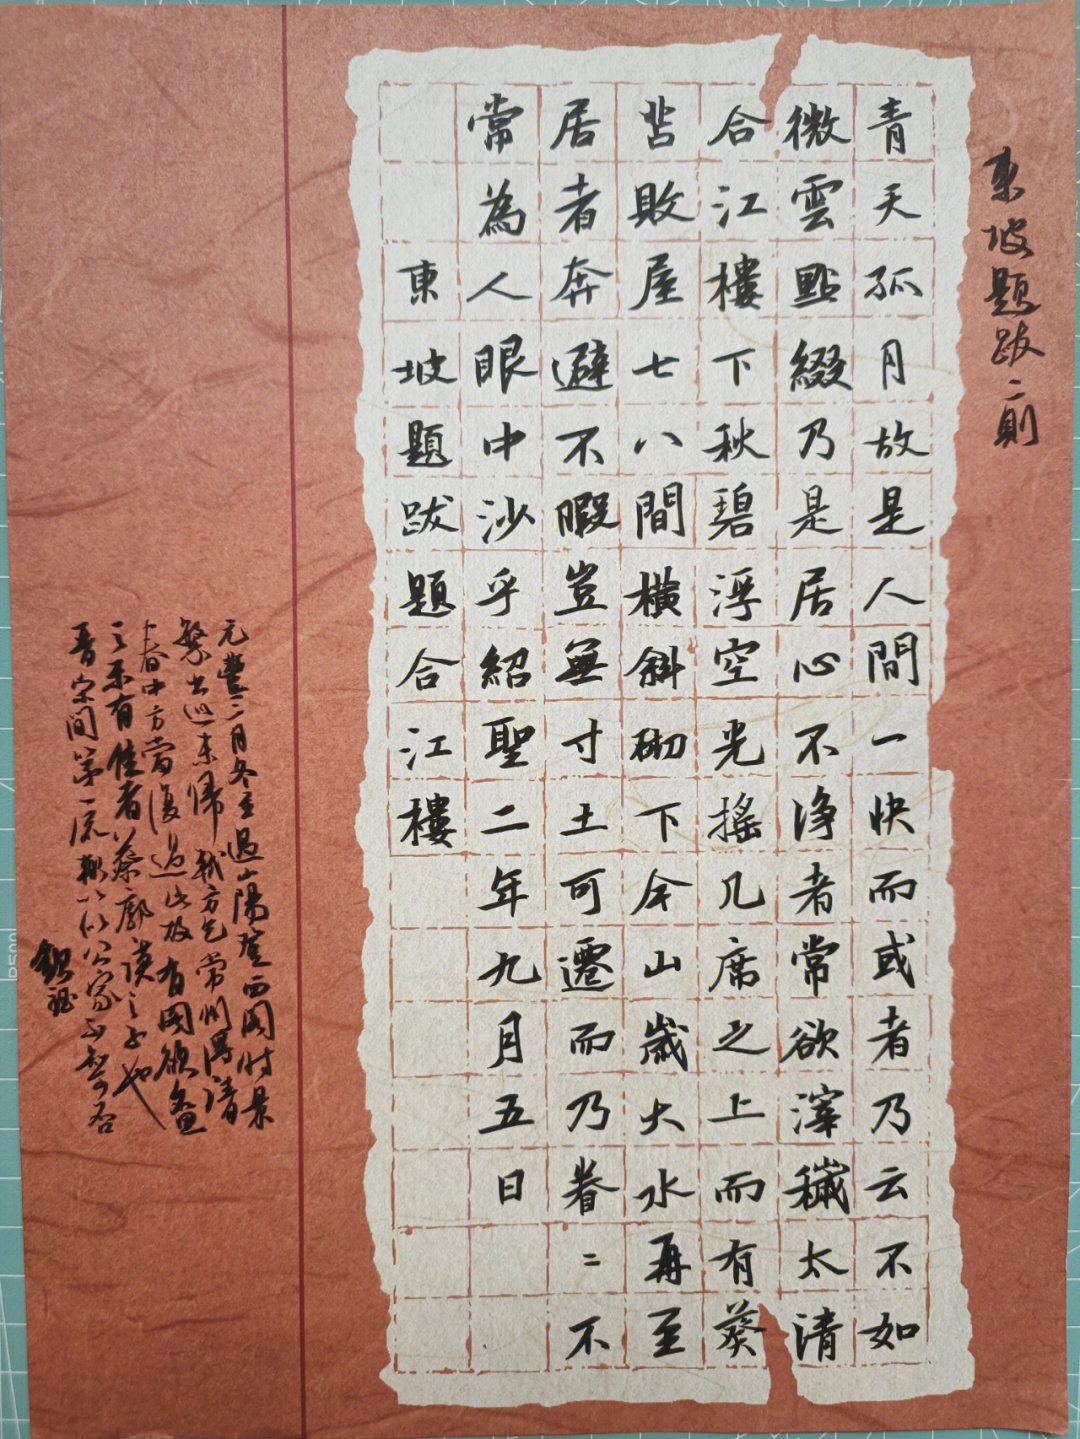 東坡題跋二則
青天孤月故是人間一快而或者乃云不如
微雲點綴乃是居心不淨者常欲滓穢太清
合江樓下秋碧浮空光搖几席之上而有葵
苫敗屋七八間橫斜砌下今山歲大水再至
居者奔避不暇豈無寸土可遷而乃眷〻不
常為人眼中沙乎紹聖二年九月五日
東坡題跋題合江樓
元豐二月冬至過山陽登西閣時景
繁出巡未歸軾方乞常州得請
春中方當復過此故有閣欲
之亦有佳者蔡廓謨之子也
晉宋間第一流輒以仰公家不知可否